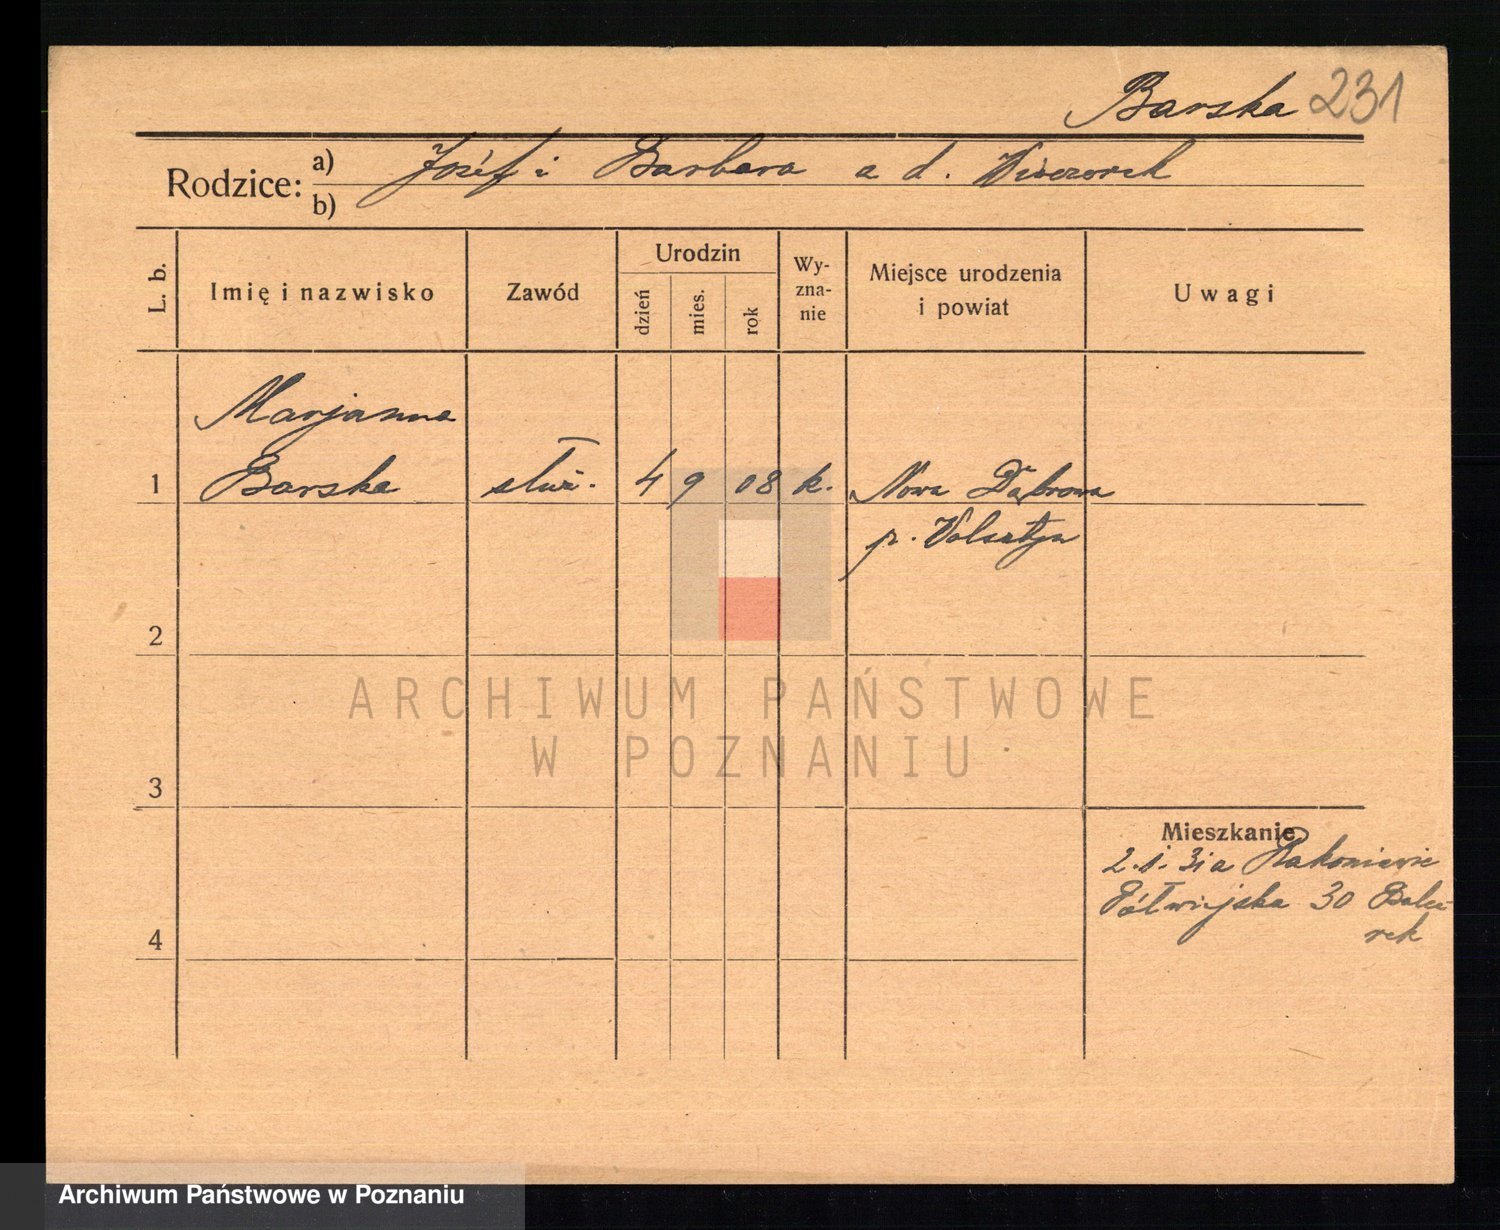 Barska 231
Rodzice: a) Józef i Barbara a d. Wieczorek
b)
L. b.
Imię i nazwisko
Zawód
Urodzin
dzień
mies.
rok
Wy-
zna-
nie
Miejsce urodzenia
i powiat
Uwagi
Marjanna
1 Barska służ. 4 9 08 k. Nowa Dąbrowa
p. Wolsztyn
2
ARCHIWUM PAŃSTWOWE
W POZNANIU
3
Mieszkanie
2. 1. 31 a Rakoniewic
Półwiejska 30
rek
4
Archiwum Państwowe w Poznaniu